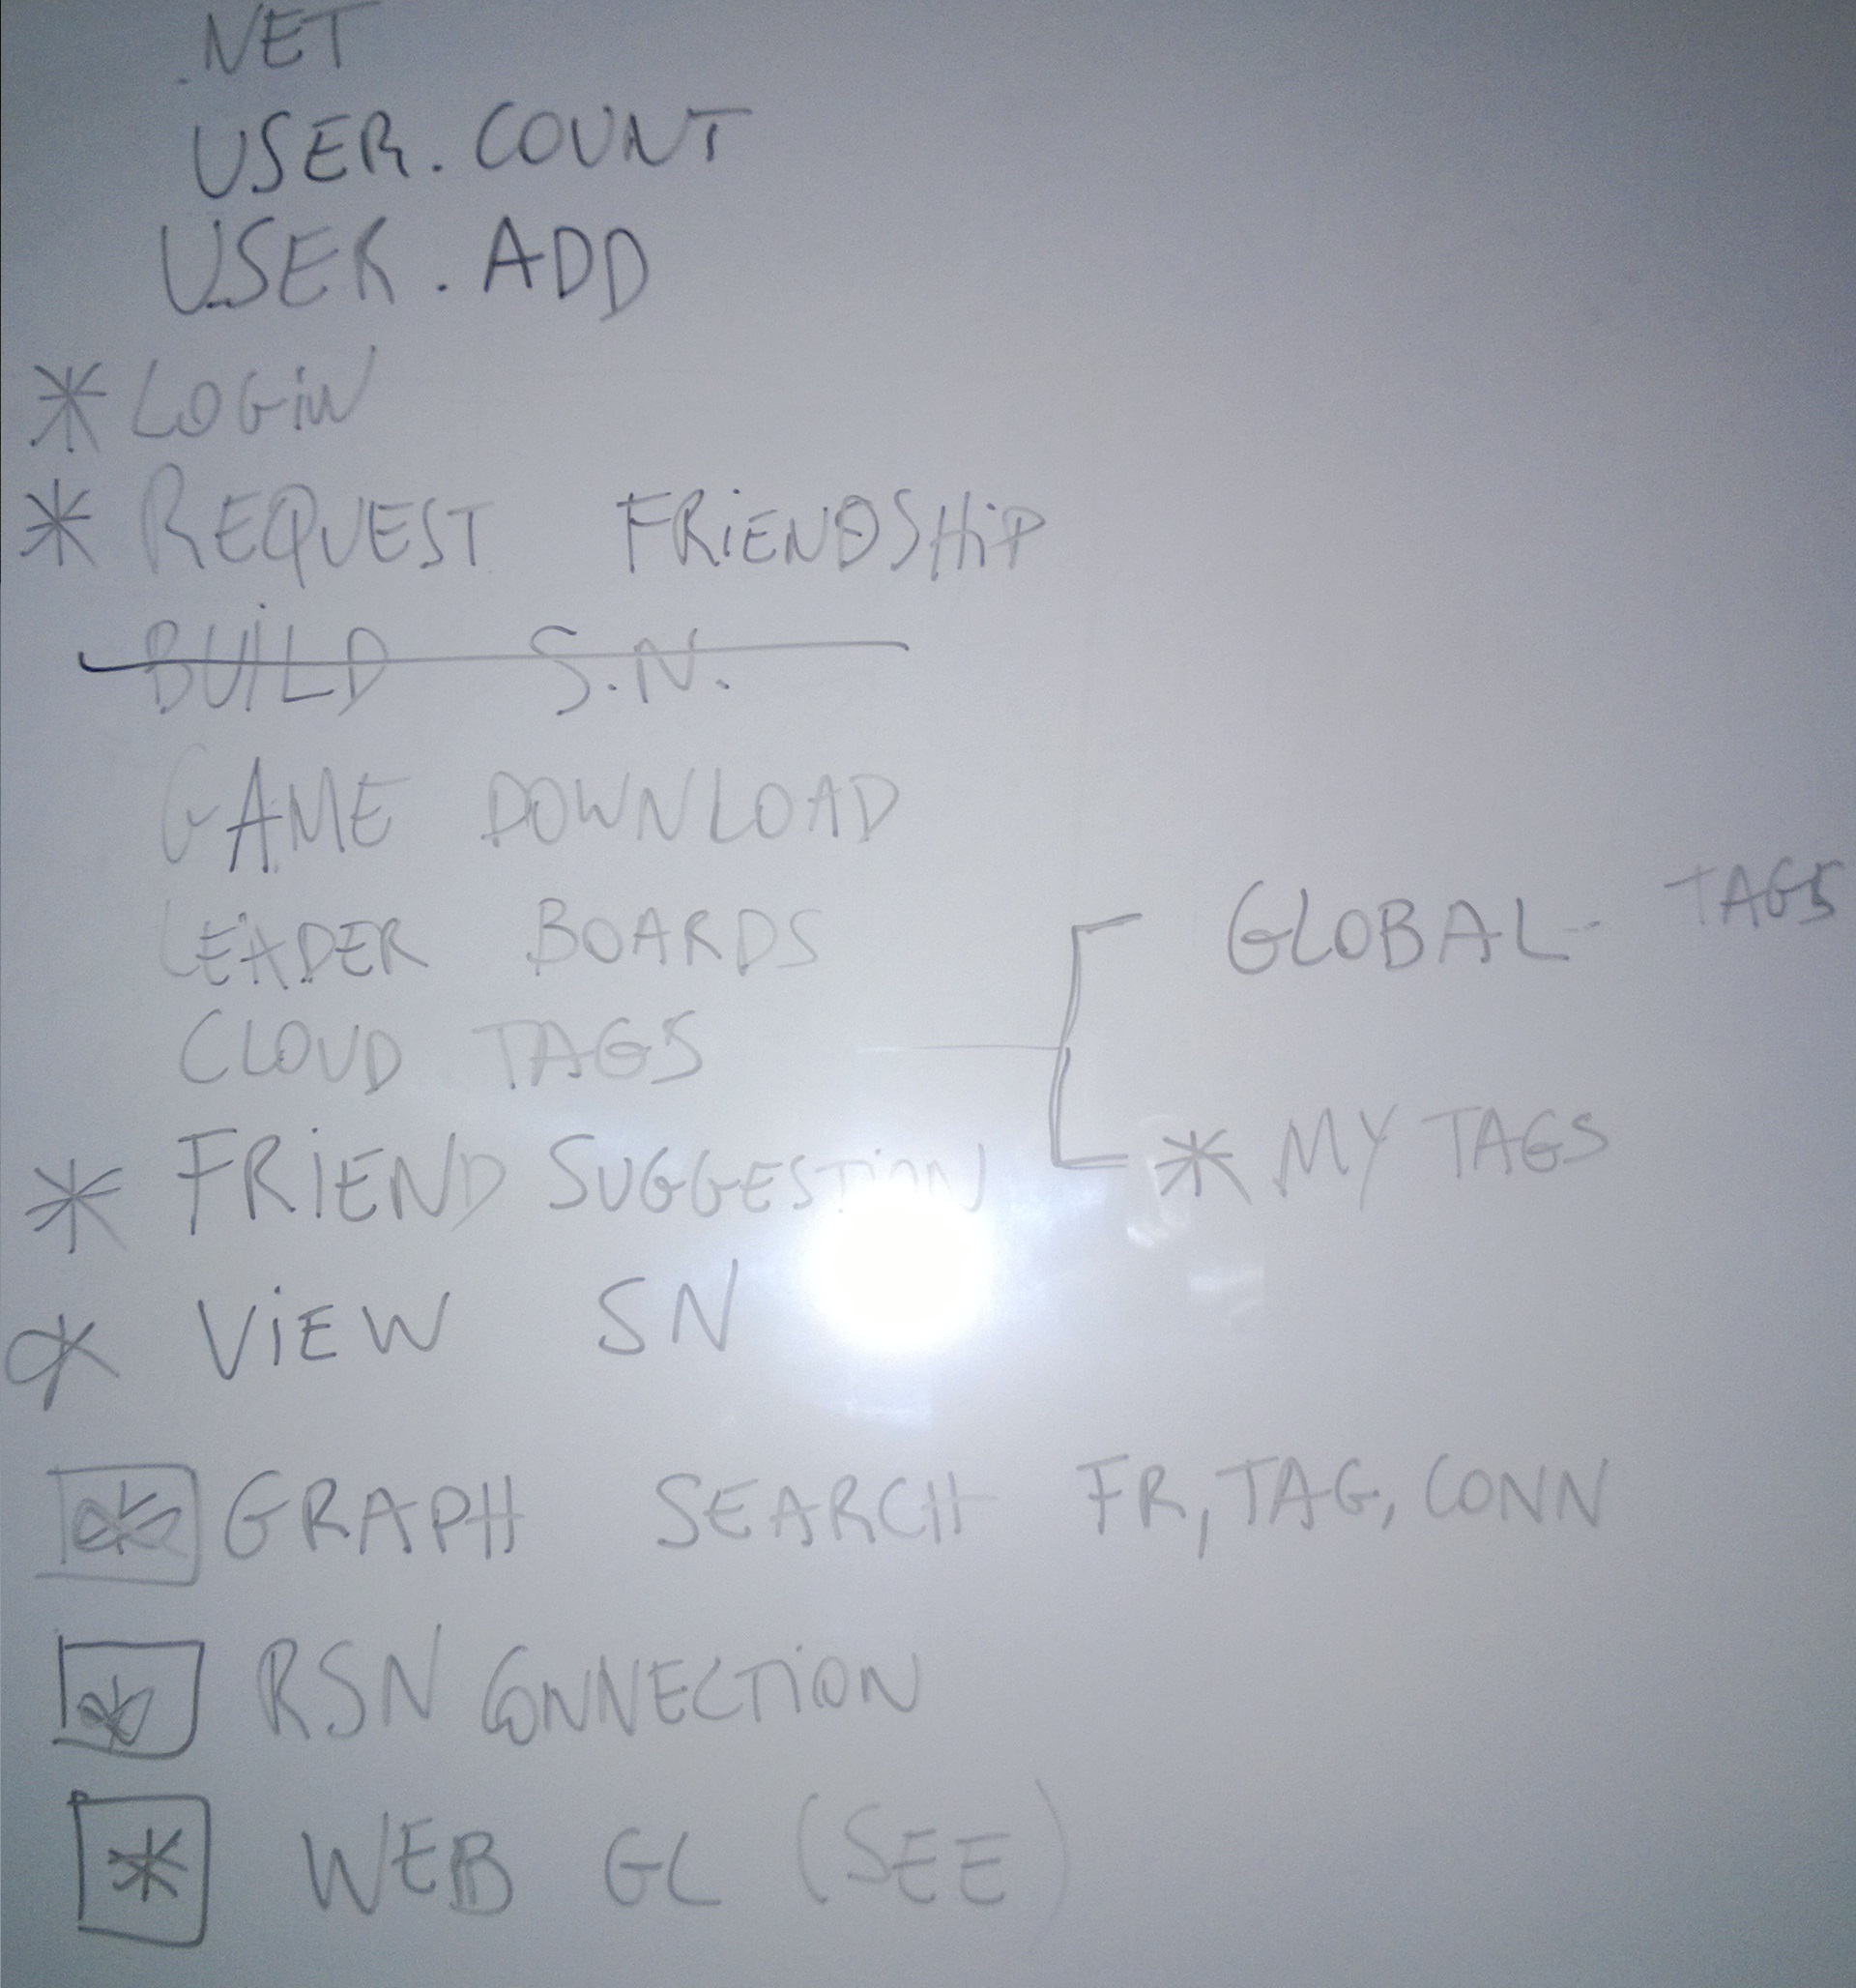 .NET
USER.COUNT
USER.ADD
* LOGiN
* REQUEST FRiENDSHiP
BUiLD S.N.
GAME DOWNLOAD
LEADER BOARDS
GLOBAL TAGS
CLOUD TAGS
* MY TAGS
* FRiENDSUGGESTiON
* ViEW SN
* GRAPH SEARCH FR, TAG, CONN
* RSN CONNECTiON
* WEB GL (SEE)